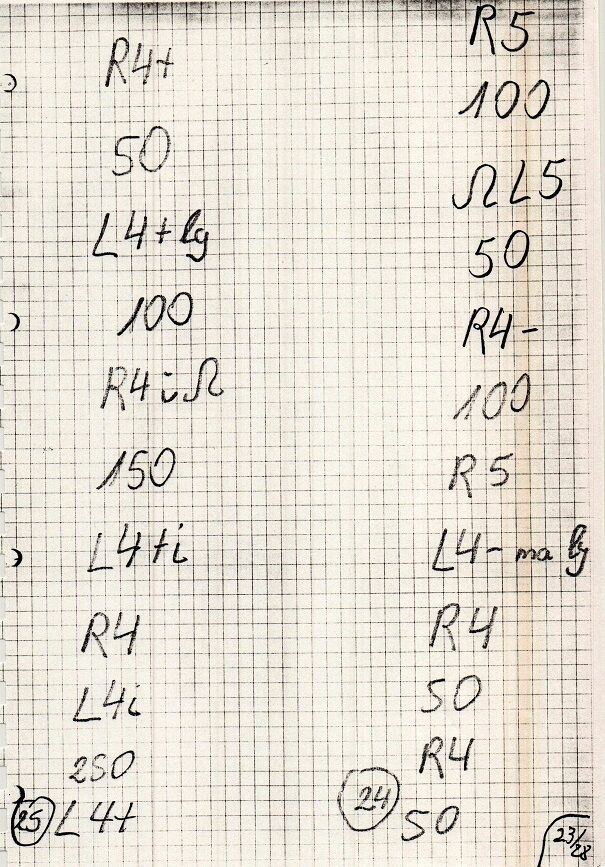 R4+
50
L4+lg
100
R4iΩ
150
L4+i
R4
L4i
250
25 L4+
R5
100
ΩL5
50
R4-
100
R5
L4- ma lg
R4
50
R4
24
50
23/28